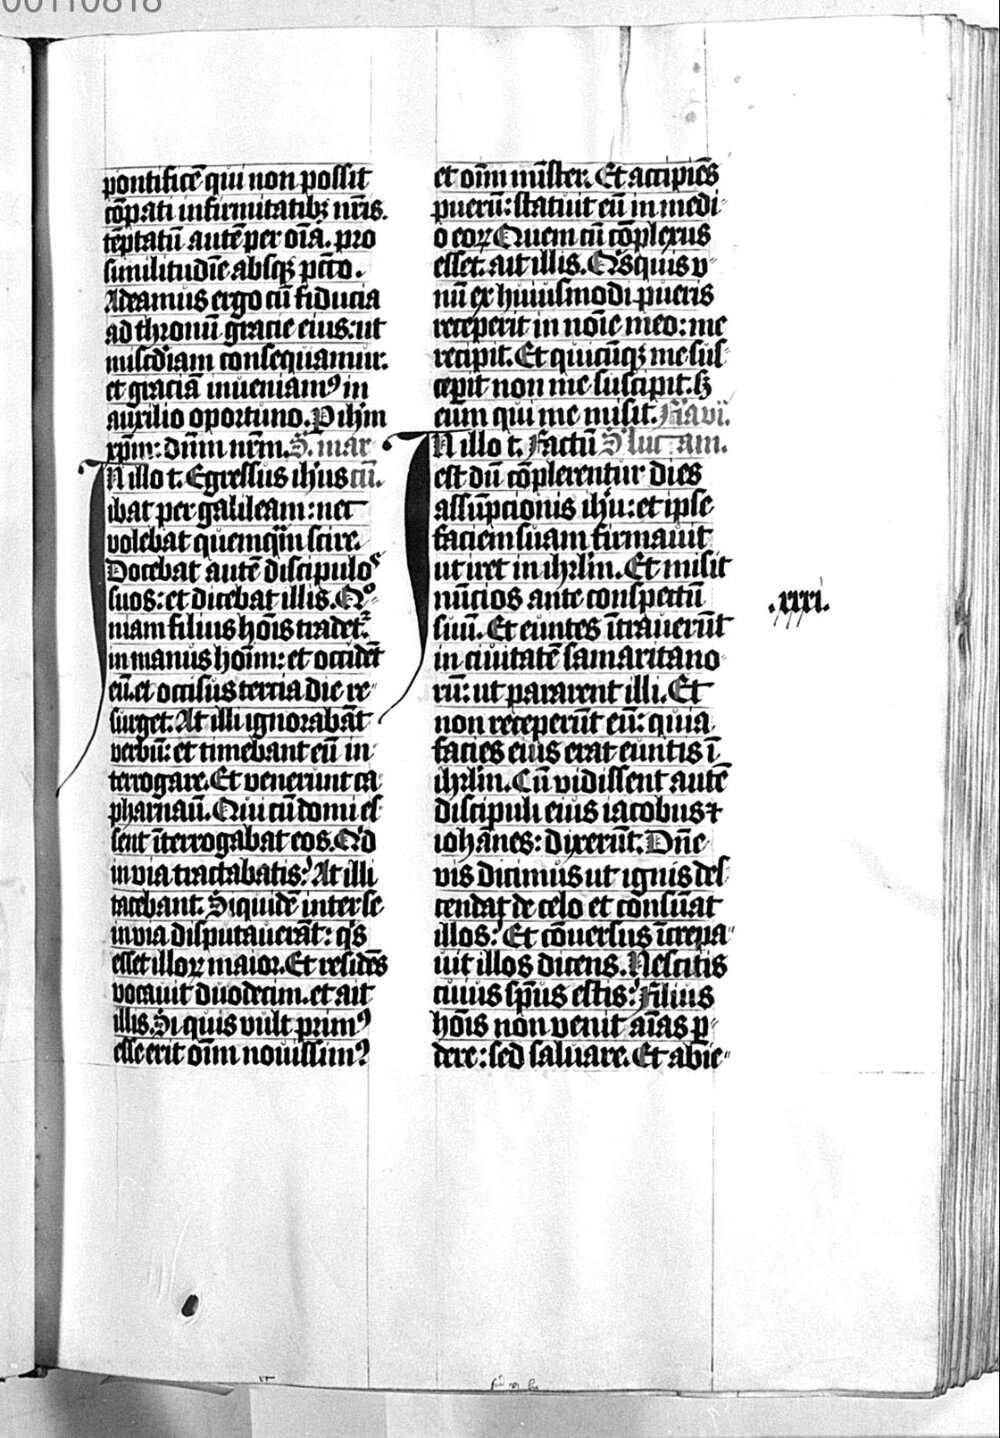 00110818
pontificē qui non possit
cōpati infirmitatibꝫ nr̄is.
tēptatū autē per oīa. pro
similitudīe absqꝫ pctō.
Adeamus ergo cū fiducia
ad thronū gracie eius: ut
miscd̄iam consequamur.
et graciā inueniamꝰ in
auxilio oportuno. P ihm̄
xpm̄: dūm nr̄m. S. mar
IN illo t. Egressus ihus cū.
ibat per galileam: nec
volebat quemq̄m scire.
Docebat autē discipulos
suos: et dicebat illis. Qo
niam filius hōis tradet᷑.
in manus hoīm: et occidēt
eū. et occisus tercia die re
surget. At illi ignorabāt
verbū: et timebant eū in
terrogare. Et venerunt ca
pharnaū. Qui cū domi es
sent īterrogabat eos. Qid
in via tractabatis? At illi
tacebant. Siquidē inter se
in via disputauerāt: qis
esset illoꝝ maior. Et residēs
vocauit duodecim. et ait
illis. Si quis vult primꝰ
esse erit oīm nouissimꝰ
et oīm mīster. Et accipiēs
puerū: statuit eū in medi
o eoꝝ Quem cū cōplexus
esset. ait illis. Qisquis v
nū ex huiusmodi pueris
receperit in noīe meo: me
recipit. Et quicūqꝫ me sus
cepit non me suscipit. sꝫ
eūm qui me misit. F̄iavi.
IN illo t. Factū S luc am.
est dū cōplerentur dies
assūpcionis ihu: et ipse
faciem suam firmauit
ut iret in ihrlm̄. Et misit
nūcios ante conspectū
suū. Et euntes ītrauerūt
in ciuitatē samaritano
rū: ut pararent illi. Et
non receperūt eū: quia
facies eius erat euntis ī
ihrlm̄. Cū vidissent autē
discipuli eius iacobus ⁊
iohānes: dixerūt. Dn̄e
vis dicimus ut ignis des
cendat de celo et consūat
illos? Et cōuersus īcrepa
uit illos dicens. Nescitis
cuius sp̄us estis? Filius
hōis non venit aīas p̄
dere: sed saluare. Et abie
.xxxi.